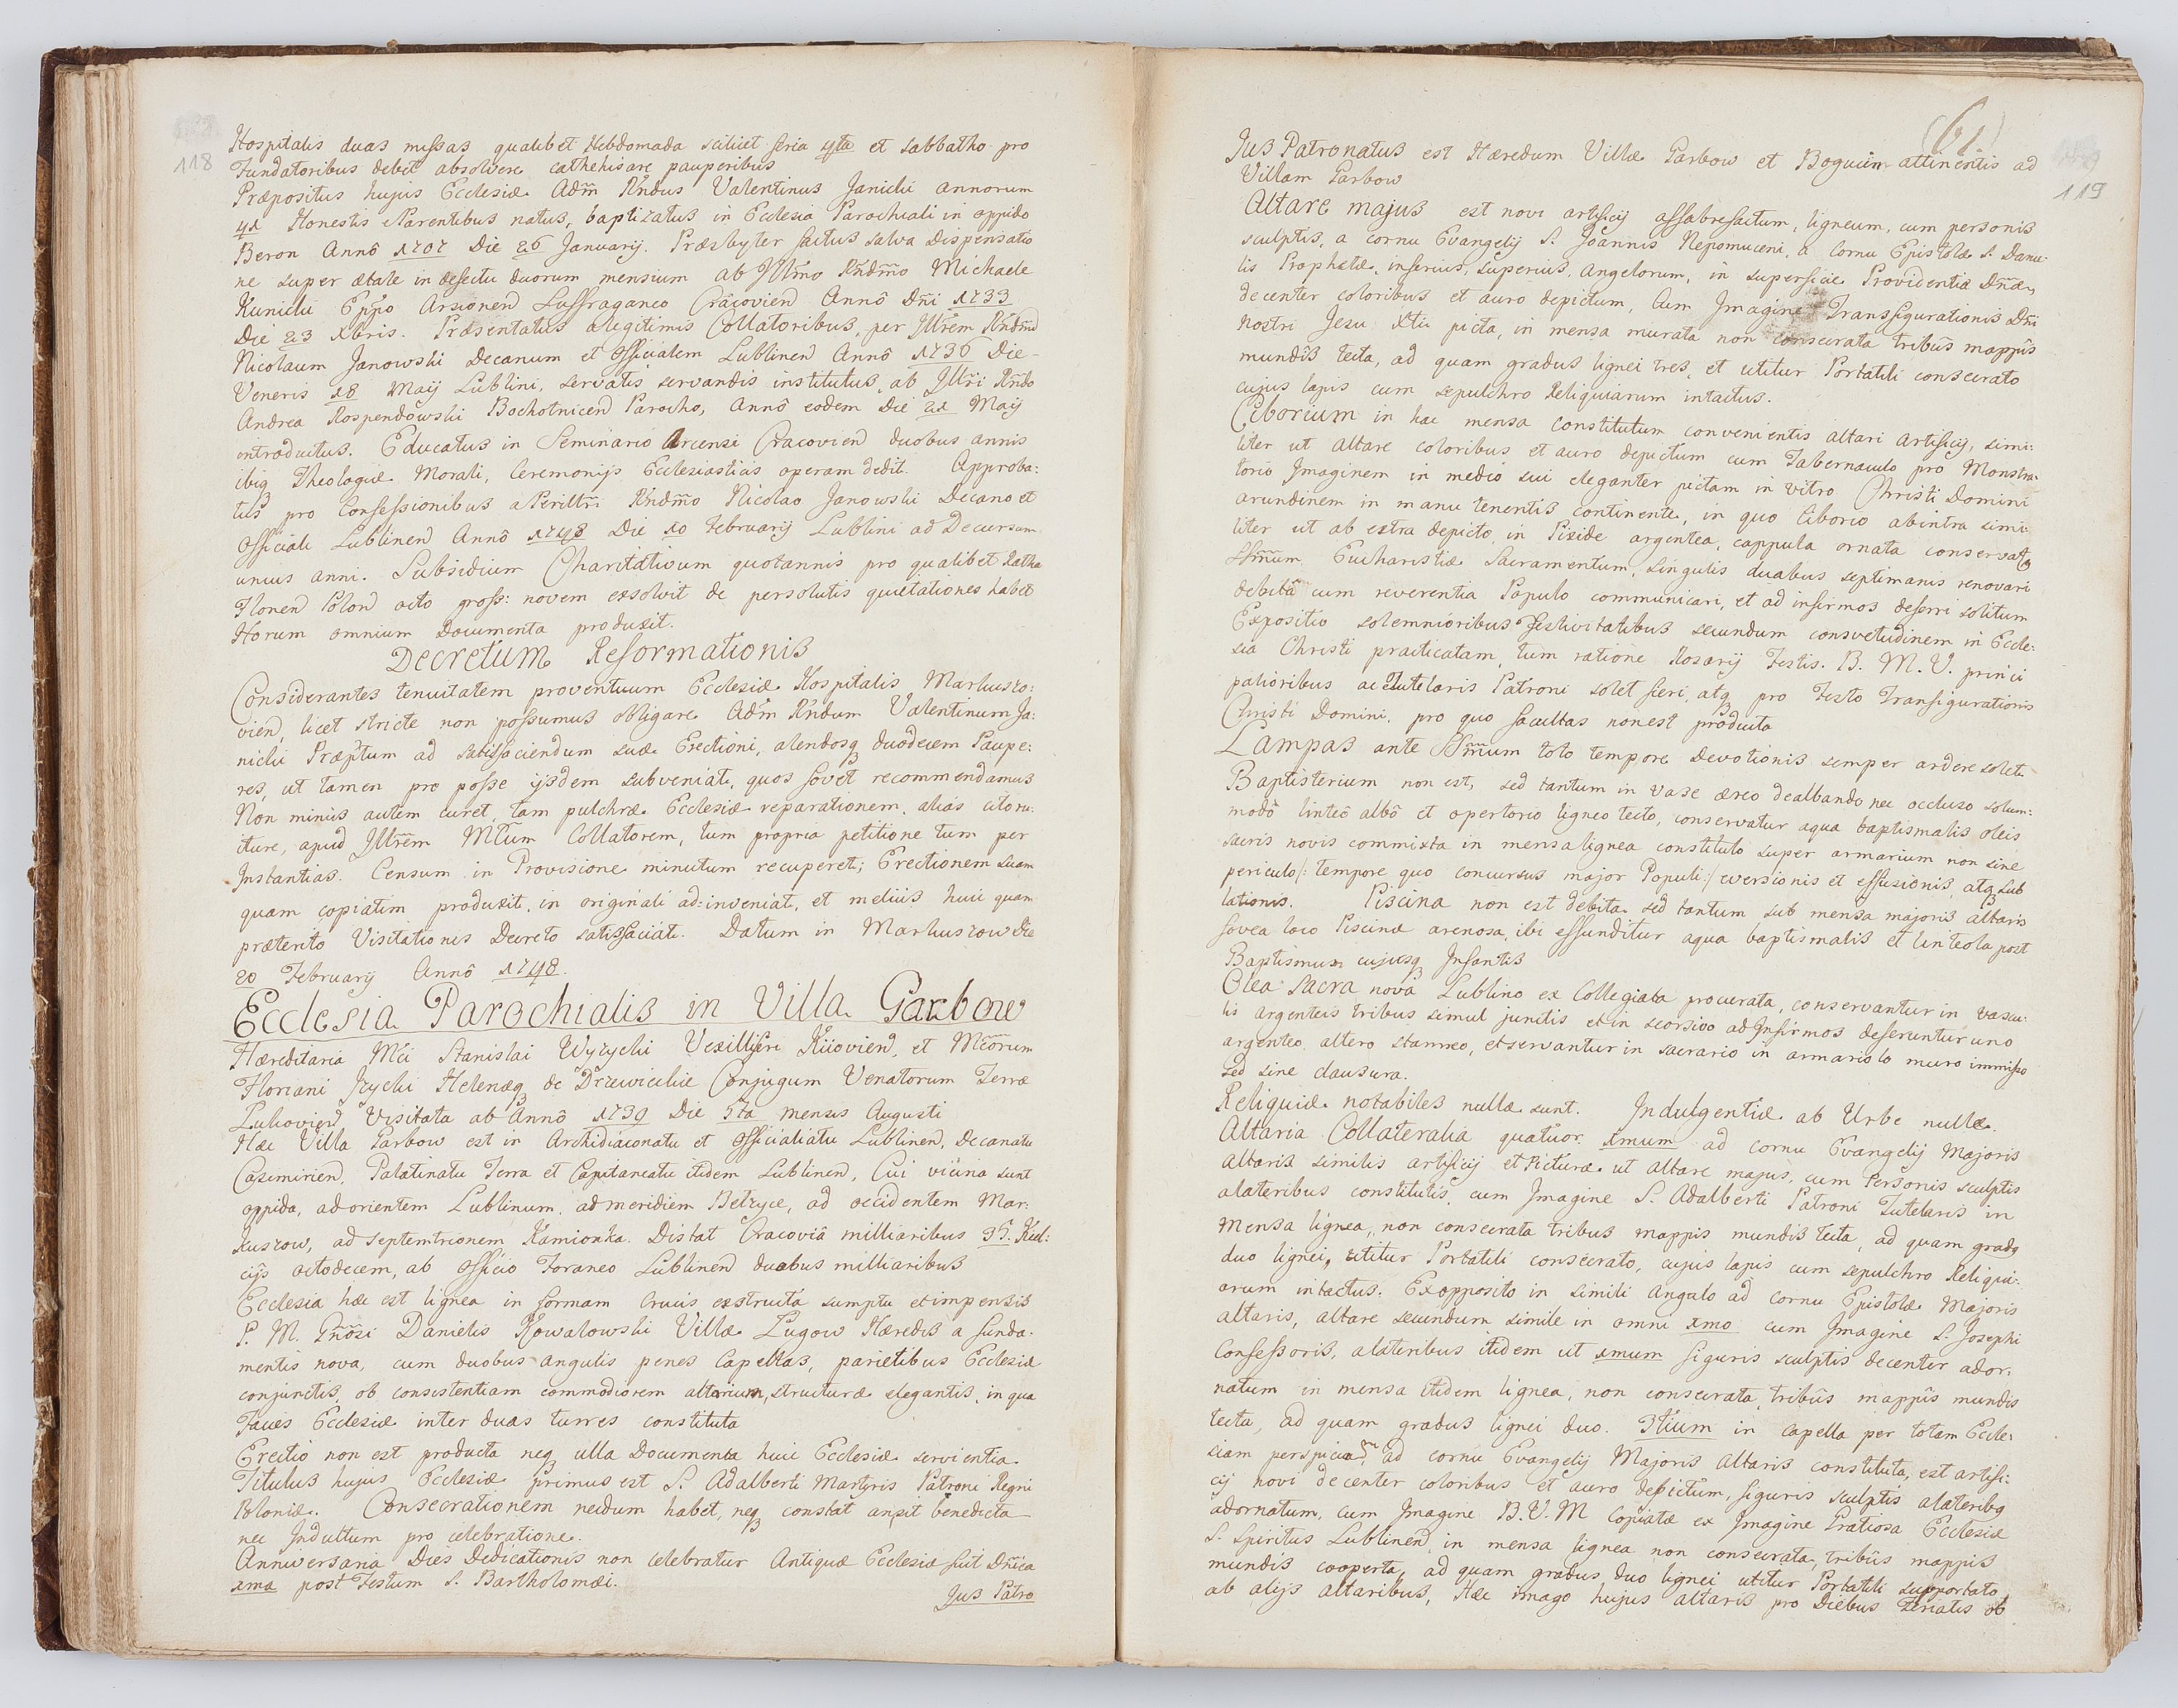 118
Hospitalis duas missas qualibet Hebdomada scilicet feria 4ta et sabbatho pro
Fundatoribus debet absolvere cathehisare pauperibus
Præpositus hujus Ecclesiæ Adm̃ Rñdus Valentinus Janicki annorum
41 Honestis Parentibus natus, baptizatus in Ecclesia Parochiali in oppido
Beron Annô 1707 Die 26 Januarij. Præsbyter factus salva dispensatio
ne super ætate in defectu duorum mensium ab Illm̃o Rñdm̃o Michaele
Kunicki Epp̃o Arsionen̄ Suffraganeo Cracovien̄ Annô Dñi 1733
Die 23 Xbris. Præsentatus a legitimis Collatoribus, per Illr̃em Rñdm̃
Nicolaum Janowski Decanum et Officialem Lublinen̄ Annô 1736 Die
Veneris 18 Maij Lublini, servatis servandis institutus, ab Illr̃i Rñdo
Andrea Rospendowski Bochotnicen̄ Parocho, Annô eodem Die 21 Maij
introductus. Educatus in Seminario Arcensi Cracovien̄ duobus annis
ibiq Theologiæ Morali, Ceremonijs Ecclesiasticis operam dedit. Approba:
tus pro Confessionibus a Perilltr̃i Rñdm̃o Nicolao Janowski Decano et
Officiali Lublinen̄ Annô 1748 Die 10 Februarij Lublini ad Decursum
unius anni. Subsidium Charitativum quotannis pro qualibet Ratha
Flonen̄ Polon̄ octo gross: novem exsolvit de persolutis quietationes habet
Horum omnium Documenta produxit.
Decretum Reformationis
Considerantes tenuitatem proventuum Ecclesiæ Hospitalis Markuszo:
vien̄, licet stricte non possumus obligare Adm̃ Rñdum Valentinum Ja:
nicki Præp̃tum ad satisfaciendum suæ Erectioni, alendosq duodecem Paupe:
res, ut tamen pro posse ijsdem subveniat, quos fovet recommendamus
Non minus autem curet, tam pulchræ Ecclesiæ reparationem, aliás cito ru:
iturę, apud Illr̃em Mc̃um Collatorem, tum propria petitione tum per
Instantias. Censum in Provisione minutum recuperet; Erectionem suam
quam copiatim produxit, in originali ad:inveniat, et meliús huic quam
præterito Visitationis Decreto satisfaciat. Datum in Markuszow die
20 February Annô 1748.
Ecclesia Parochialis in Villa Garbow
Hæreditaria Mc̃i Stanislai Wyżycki Vexilliferi Kiiovien̄, et Mc̃orum
Floriani Jżycki Helenæq de Drzewieckie Conjugum Venatorum Terræ
Lukovien̄ Visitata ab Annô 1739 Die 5ta mensis Augusti
Hæc Villa Garbow est in Archidiaconatu et Officialatu Lublinen̄, Decanatu
Casimirien̄, Palatinatu Terra et Capitaneatu itidem Lublinen̄, Cui vicina sunt
oppida, ad orientem Lublinum, ad meridiem Betżyce, ad occidentem Mar:
kuszow, ad Septemtrionem Kamionka. Distat Cracoviâ milliaribus 35. Kiel:
cijs octodecem, ab Officio Foraneo Lublinen̄ duabus milliaribus
Ecclesia hæc est lignea in formam Crucis exstructa sumptu et impensis
P. M. Gñosi Danielis Kowalowski Villæ Lugow Hæredis a funda:
mentis nova, cum duobus angulis penes Capellas, parietibus Ecclesiæ
conjunctis, ob consistentiam commodiorem altarium, structuræ elegantis, in qua
Facies Ecclesiæ inter duas turres constituta
Erectio non est producta neq ulla Documenta huic Ecclesiæ servientia
Titulus hujus Ecclesiæ primus est S. Adalberti Martyris Patroni Regni
Poloniæ. Consecrationem necdum habet, neq constat an sit benedicta
nec Indultum pro celebratione.
Anniversaria Dies Dedicationis non celebratur Antiquæ Ecclesiæ fuit Dñica
1ma post Festum S. Bartholomæi.
Jus Patro
(61.)
119
Jus Patronatus est Hæredum Villæ Garbow et Bogucin attinentis ad
Villam Garbow
Altare majus est novi artificij assabrefactum, ligneum, cum personis
sculptis, a cornu Evangelij S. Joannis Nepomuceni, a Cornu Epistolæ S. Danie:
lis Prophetæ, inferius, superius, Angelorum, in superficie Providentiæ Dñæ,
decenter coloribus et auro depictum, Cum Imagine Transfigurationis Dñi
Nostri Jesu Xti picta, in mensa murata non consecrata tribus mappis
mundis tecta, ad quam gradus lignei tres, et utitur Portatili consecrato
cujus lapis cum sepulchro Reliquiarum intactus.
Ciborium in hac mensa constitutum convenientis altari artificij, simi:
liter ut altare coloribus et auro depictum cum Tabernaculo pro Monstra:
torio Imaginem in medio sui eleganter pictam in vitro Christi Domini
arundinem in manu tenentis continente, in quo Ciborio abintra simi:
liter ut ab extra depicto, in Pixide argentea, cappula ornata conservatq
SSm̃um Eucharistiæ Sacramentum, singulis duabus septimanis renovari
debitâ cum reverentia Populo communicari, et ad infirmos deferri solitum
Expositio solemnioribus Festivitatibus secundum consvetudinem in Eccle:
sia Christi practicatam, tum ratione Rosarij Festis. B. M. V. princi
palioribus ac Tutelaris Patroni solet fieri, atq pro Festo Transfigurationis
Christi Domini, pro quo facultas non est producta
Lampas ante SSm̃um toto tempore Devotionis semper ardere solet
Baptisterium non est, sed tantum in vase æreo dealbando nec occluso solum:
modò linteô albô et opertorio ligneo tecto, conservatur aqua baptismalis oleis
sacris novis commixta in mensa lignea constituto super armarium non sine
periculo/: tempore quo concursus major Populi:/ eversionis et effusionis, atq sub
lationis. Piscina non est debita sed tantum sub mensa majoris altaris
fovea loco Piscinæ arenosa, ibi effunditur aqua baptismalis et linteola post
Baptismum cujusq Infantis
Olea Sacra nova Lublino ex Collegiata procurata, conservantur in vascu:
lis argenteis tribus simul junctis et in seorsivo ad Infirmos deferuntur uno
argenteo altero stanneo, et servantur in sacrario in armariolo muro immisso
sed sine clausura.
Reliquiæ notabiles nullæ sunt. Indulgentiæ ab Urbe nullæ.
Altaria Collateralia quatuor. 1mum ad cornu Evangelij Majoris
Altaris similis artificij et Picturæ ut altare majus, cum Personis sculptis
alateribus constitutis, cum Imagine S. Adalberti Patroni Tutelaris in
Mensa lignea, non consecrata tribus mappis mundis tecta, ad quam gradq
duo lignei, utitur Portatili consecrato, cujus lapis cum sepulchro Reliqui:
arum intactus. Ex opposito in simili angulo ad cornu Epistolæ Majoris
altaris, altare secundum simile in omni 1mo cum Imagine S. Josephi
Confessoris, alateribus itidem ut 1mum figuris sculptis decenter ador:
natum in mensa itidem lignea, non consecrata, tribus mappis mundis
tecta, ad quam gradus lignei duo. 3tium in Capella per totam Eccle:
siam perspicua, ad cornu Evangelij Majoris Altaris constituta, est artifi:
cij novi decenter coloribus et auro depictum, figuris sculptis alateribq
adornatum, cum Imagine B. V. M Copiatæ ex Imagine Gratiosa Ecclesiæ
S. Spiritus Lublinen̄ in mensa lignea non consecrata, tribus mappis
mundis cooperta, ad quam gradus duo lignei utitur Portatili supportato
ab alijs altaribus, Hæc imago hujus altaris pro Diebus Feriatis ob